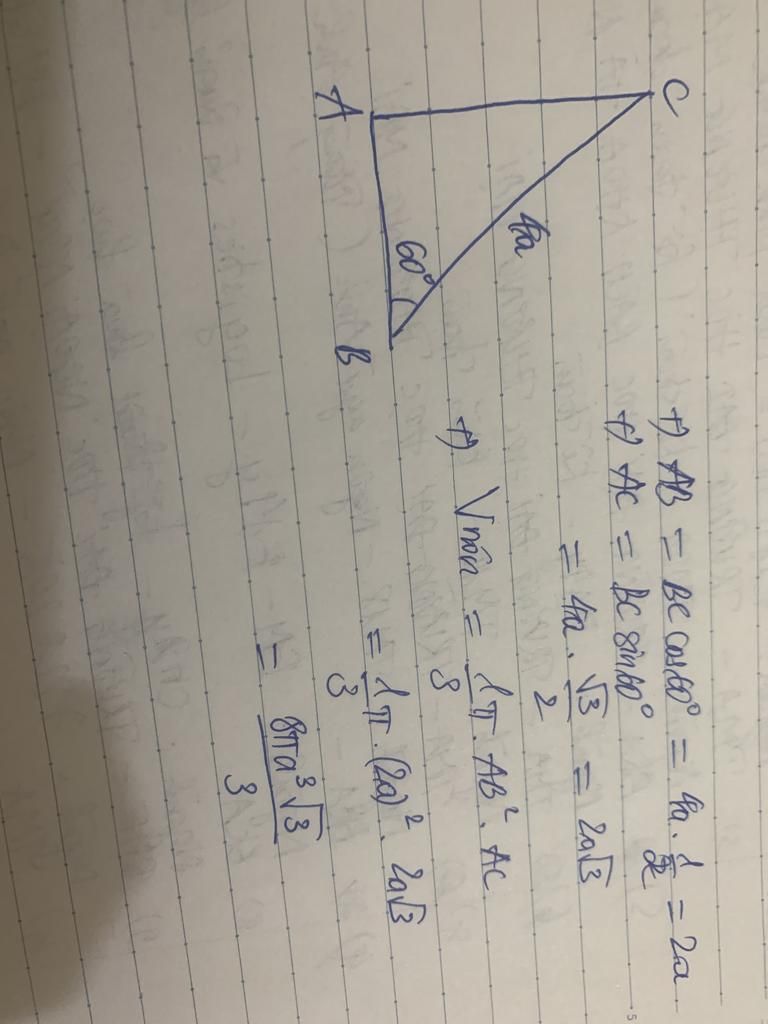 C
4a
A
60°
B
+) AB = BC cos60° = 4a . 1/2 = 2a
+) AC = BC sin60°
= 4a . √3/2 = 2a√3
+) Vnón = 1/3 π . AB² . AC
= 1/3 π . (2a)² . 2a√3
= 8πa³√3/3